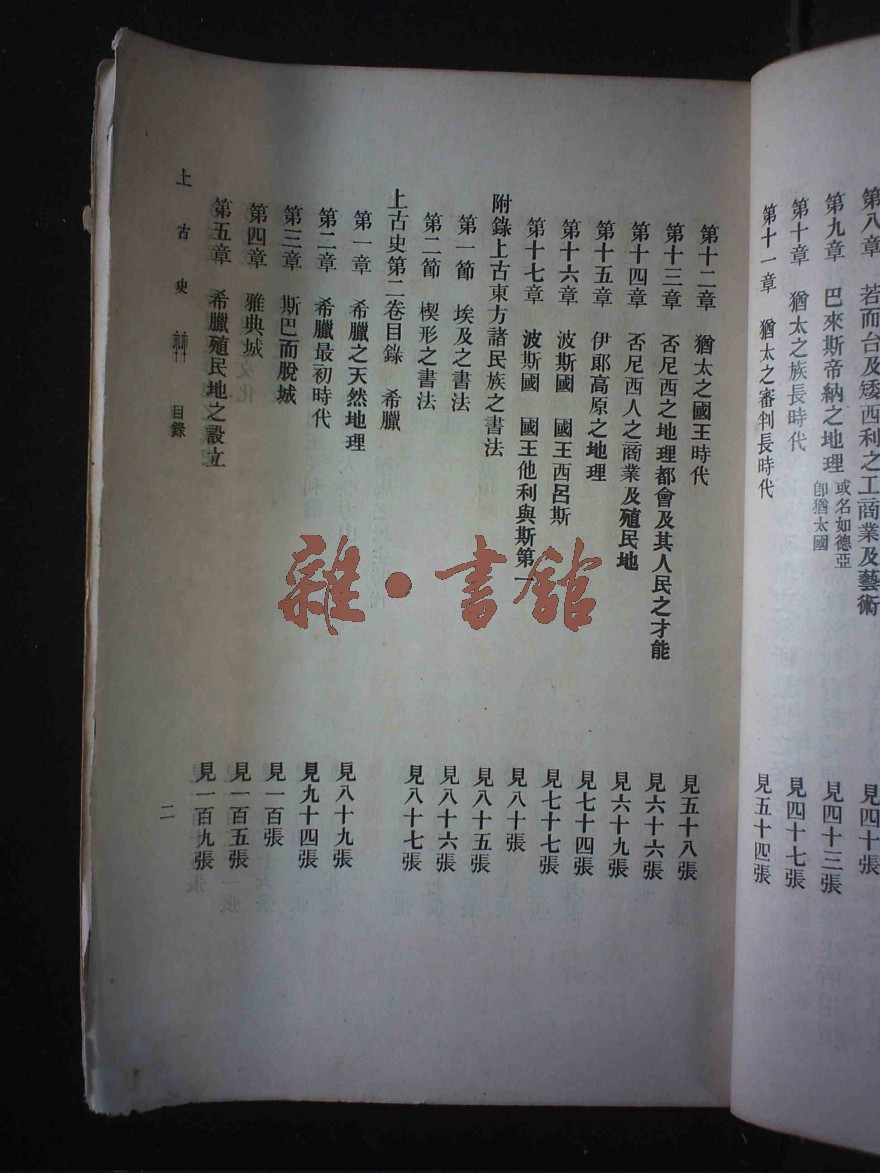 第八章　若而台及矮西利之工商業及藝術　見四十張
第九章　巴來斯帝納之地理　或名如德亞即猶太國　見四十三張
第十章　猶太之族長時代　見四十七張
第十一章　猶太之審判長時代　見五十四張
第十二章　猶太之國王時代　見五十八張
第十三章　否尼西之地理都會及其人民之才能　見六十六張
第十四章　否尼西人之商業及殖民地　見六十九張
第十五章　伊郥高原之地理　見七十四張
第十六章　波斯國　國王西呂斯　見七十七張
第十七章　波斯國　國王他利與斯第一　見八十張
附錄上古東方諸民族之書法　見八十五張
第一節　埃及之書法　見八十六張
第二節　楔形之書法　見八十七張
上古史第二卷目錄　希臘
第一章　希臘之天然地理　見八十九張
第二章　希臘最初時代　見九十四張
第三章　斯巴而脫城　見一百張
第四章　雅典城　見一百五張
第五章　希臘殖民地之設立　見一百九張
上古史　目錄　二
雜·書館